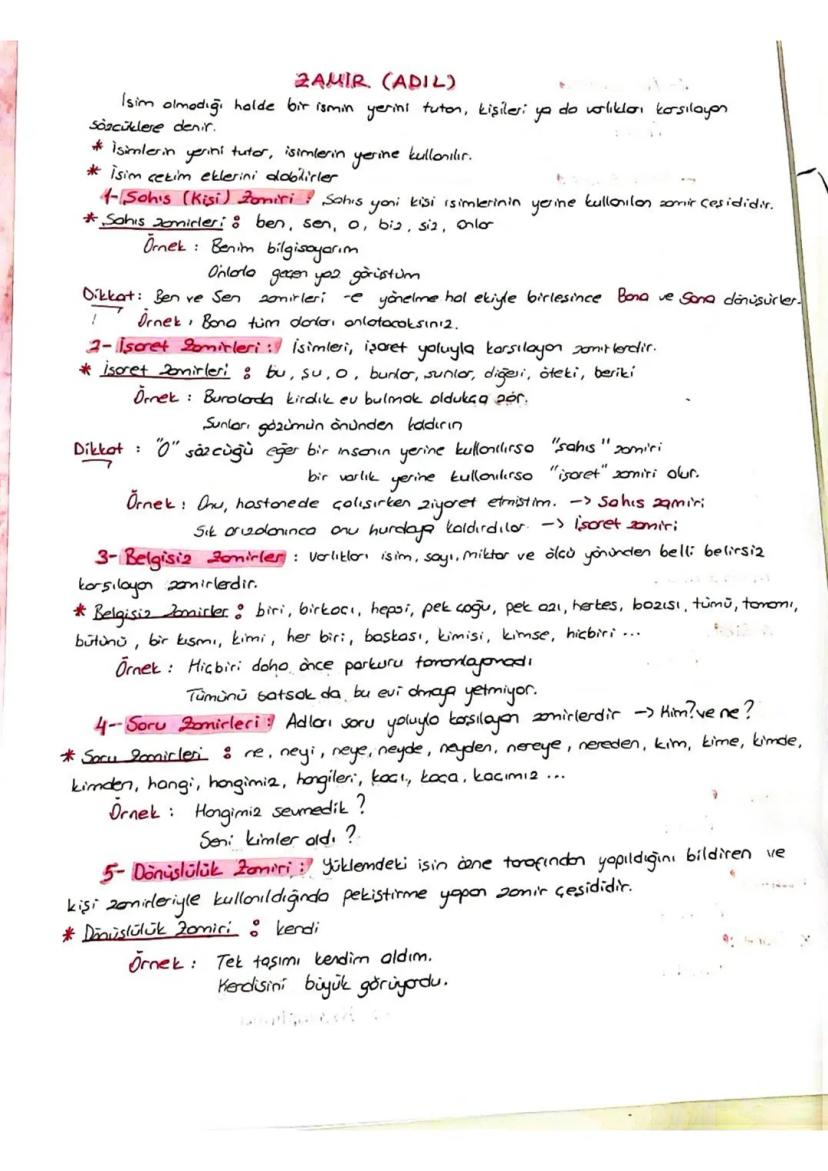 ZAMİR (ADIL)
İsim olmadığı halde bir ismin yerini tutan, kişileri ya da varlıkları karşılayan
sözcüklere denir.
* İsimlerin yerini tutar, isimlerin yerine kullanılır.
* İsim çekim eklerini alabilirler
1- Şahıs (Kişi) Zamiri : Şahıs yani kişi isimlerinin yerine kullanılan zamir çeşididir.
* Şahıs zamirleri : ben, sen, o, biz, siz, onlar
Örnek : Benim bilgisayarım
Onlarla geçen yaz görüştüm
Dikkat : Ben ve Sen zamirleri -e yönelme hal ekiyle birleşince Bana ve Sana dönüşürler.
! Örnek : Bana tüm dersleri anlatacaksınız.
2- İşaret Zamirleri : İsimleri, işaret yoluyla karşılayan zamirlerdir.
* İşaret zamirleri : bu, şu, o, bunlar, şunlar, diğeri, öteki, beriki
Örnek : Buralarda kiralık ev bulmak oldukça zor.
Şunları gözümün önünden kaldırın
Dikkat : "O" sözcüğü eğer bir insanın yerine kullanılırsa "şahıs" zamiri
bir varlık yerine kullanılırsa "işaret" zamiri olur.
Örnek : Onu, hastanede çalışırken ziyaret etmiştim. -> Şahıs zamiri
Sık arızalanınca onu hurdaya kaldırdılar. -> İşaret zamiri
3- Belgisiz Zamirler : Varlıkları isim, sayı, miktar ve ölçü yönünden belli belirsiz
karşılayan zamirlerdir.
* Belgisiz Zamirler : biri, birkaçı, hepsi, pek çoğu, pek azı, herkes, bazısı, tümü, tamamı,
bütünü, bir kısmı, kimi, her biri, başkası, kimisi, kimse, hiçbiri ...
Örnek : Hiçbiri daha önce parkuru tamamlayamadı
Tümünü satsak da bu evi almaya yetmiyor.
4- Soru Zamirleri : Adları soru yoluyla karşılayan zamirlerdir -> Kim? ve ne?
* Soru Zamirleri : ne, neyi, neye, neyde, neyden, nereye, nereden, kim, kime, kimde,
kimden, hangi, hangimiz, hangileri, kaçı, kaça, kaçımız ...
Örnek : Hangimiz sevmedik ?
Seni kimler aldı ?
5- Dönüşlülük Zamiri : Yüklemdeki işin özne tarafından yapıldığını bildiren ve
kişi zamirleriyle kullanıldığında pekiştirme yapan zamir çeşididir.
* Dönüşlülük Zamiri : kendi
Örnek : Tek taşımı kendim aldım.
Kendisini büyük görüyordu.